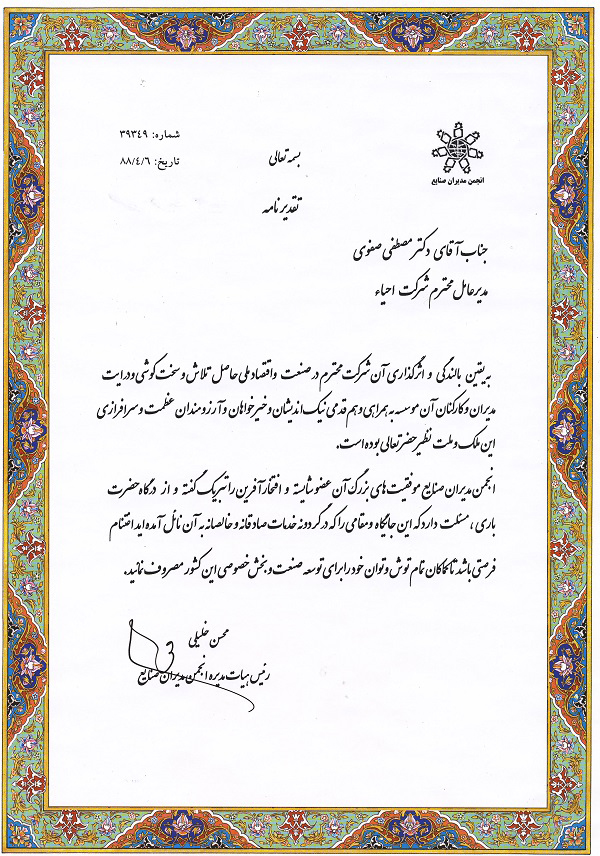 شماره: ۳۹۳۴۹
تاریخ: ۸۸/۴/۶
انجمن مدیران صنایع
بسمه تعالی
تقدیرنامه
جناب آقای دکتر مصطفی صفوی
مدیرعامل محترم شرکت احیاء
به یقین بالندگی و اثرگذاری آن شرکت محترم در صنعت و اقتصاد ملی حاصل تلاش و سخت کوشی و درایت
مدیران و کارکنان آن موسسه به همراهی و هم قدمی نیک اندیشان و خیرخواهان و آرزومندان عظمت و سرافرازی
این ملک و ملت نظیر حضرتعالی بوده است.
انجمن مدیران صنایع موفقیت های بزرگ آن عضو شایسته و افتخارآفرین را تبریک گفته و از درگاه حضرت
باری، مسئلت دارد که این جایگاه و مقامی را که در گردونه خدمات صادقانه و خالصانه به آن نائل آمده اید اغتنام
فرصتی باشد تا کماکان تمام توش و توان خود را برای توسعه صنعت و بخش خصوصی این کشور مصروف نمائید.
محسن خلیلی
رئیس هیات مدیره انجمن مدیران صنایع